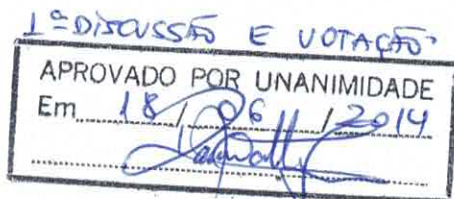 1ª DISCUSSÃO E VOTAÇÃO
APROVADO POR UNANIMIDADE
Em 18/06/2014